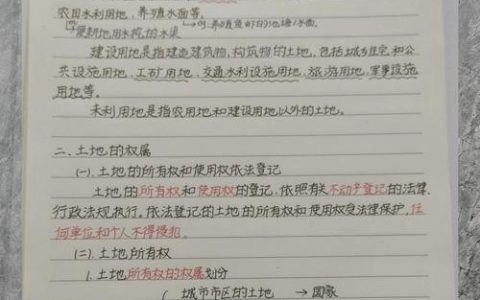 农田水利用地、养殖水面等。
建设用地是指建造建筑物、构筑物的土地，包括城乡住宅和公
共设施用地，工矿用地，交通水利设施用地，旅游用地，军事设施
用地等。
未利用地是指农用地和建设用地以外的土地。
二、土地的权属
(一).土地的所有权和使用权依法登记
土地的所有权和使用权的登记，依照有关不动产登记的法律、
行政法规执行。依法登记的土地的所有权和使用权受法律保护，任
何单位和个人不得侵犯。
(二).土地所有权
1.土地所有权的权属划分
城市市区的土地 → 国家